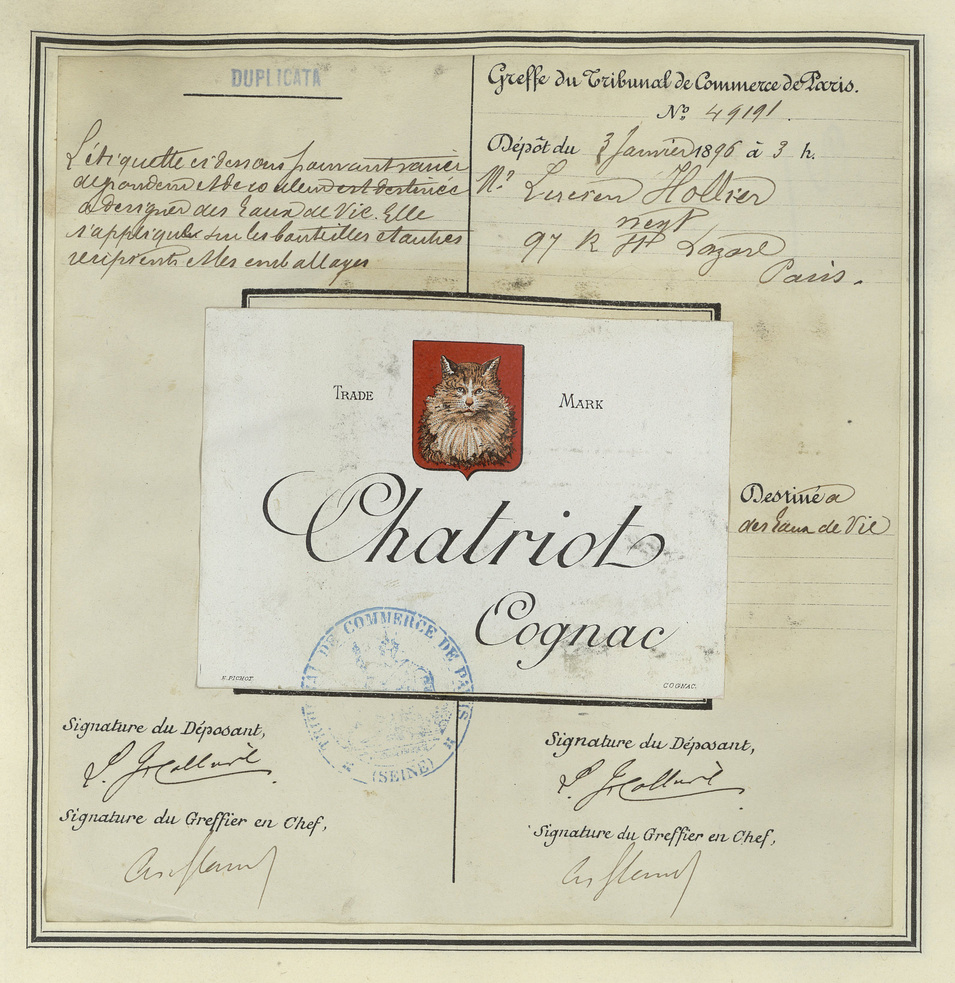 DUPLICATA
L'étiquette ci dessous pouvant varier
de
a designer des Eaux de Vie. Elle
s'applique sur les bouteilles et autres
récipients et les emballages
Greffe du Tribunal de Commerce de Paris.
No 49191.
Dépôt du 3 Janvier 1896 à 3 h.
Mr Lucien Hollier
negt
97 R St Lazare
Paris.
TRADE MARK
Chatriot
Cognac
COGNAC.
Destiné a
des Eaux de Vie
TRIBUNAL DE COMMERCE DE PARIS
(SEINE)
Signature du Déposant,
Signature du Greffier en Chef,
Signature du Déposant,
Signature du Greffier en Chef,